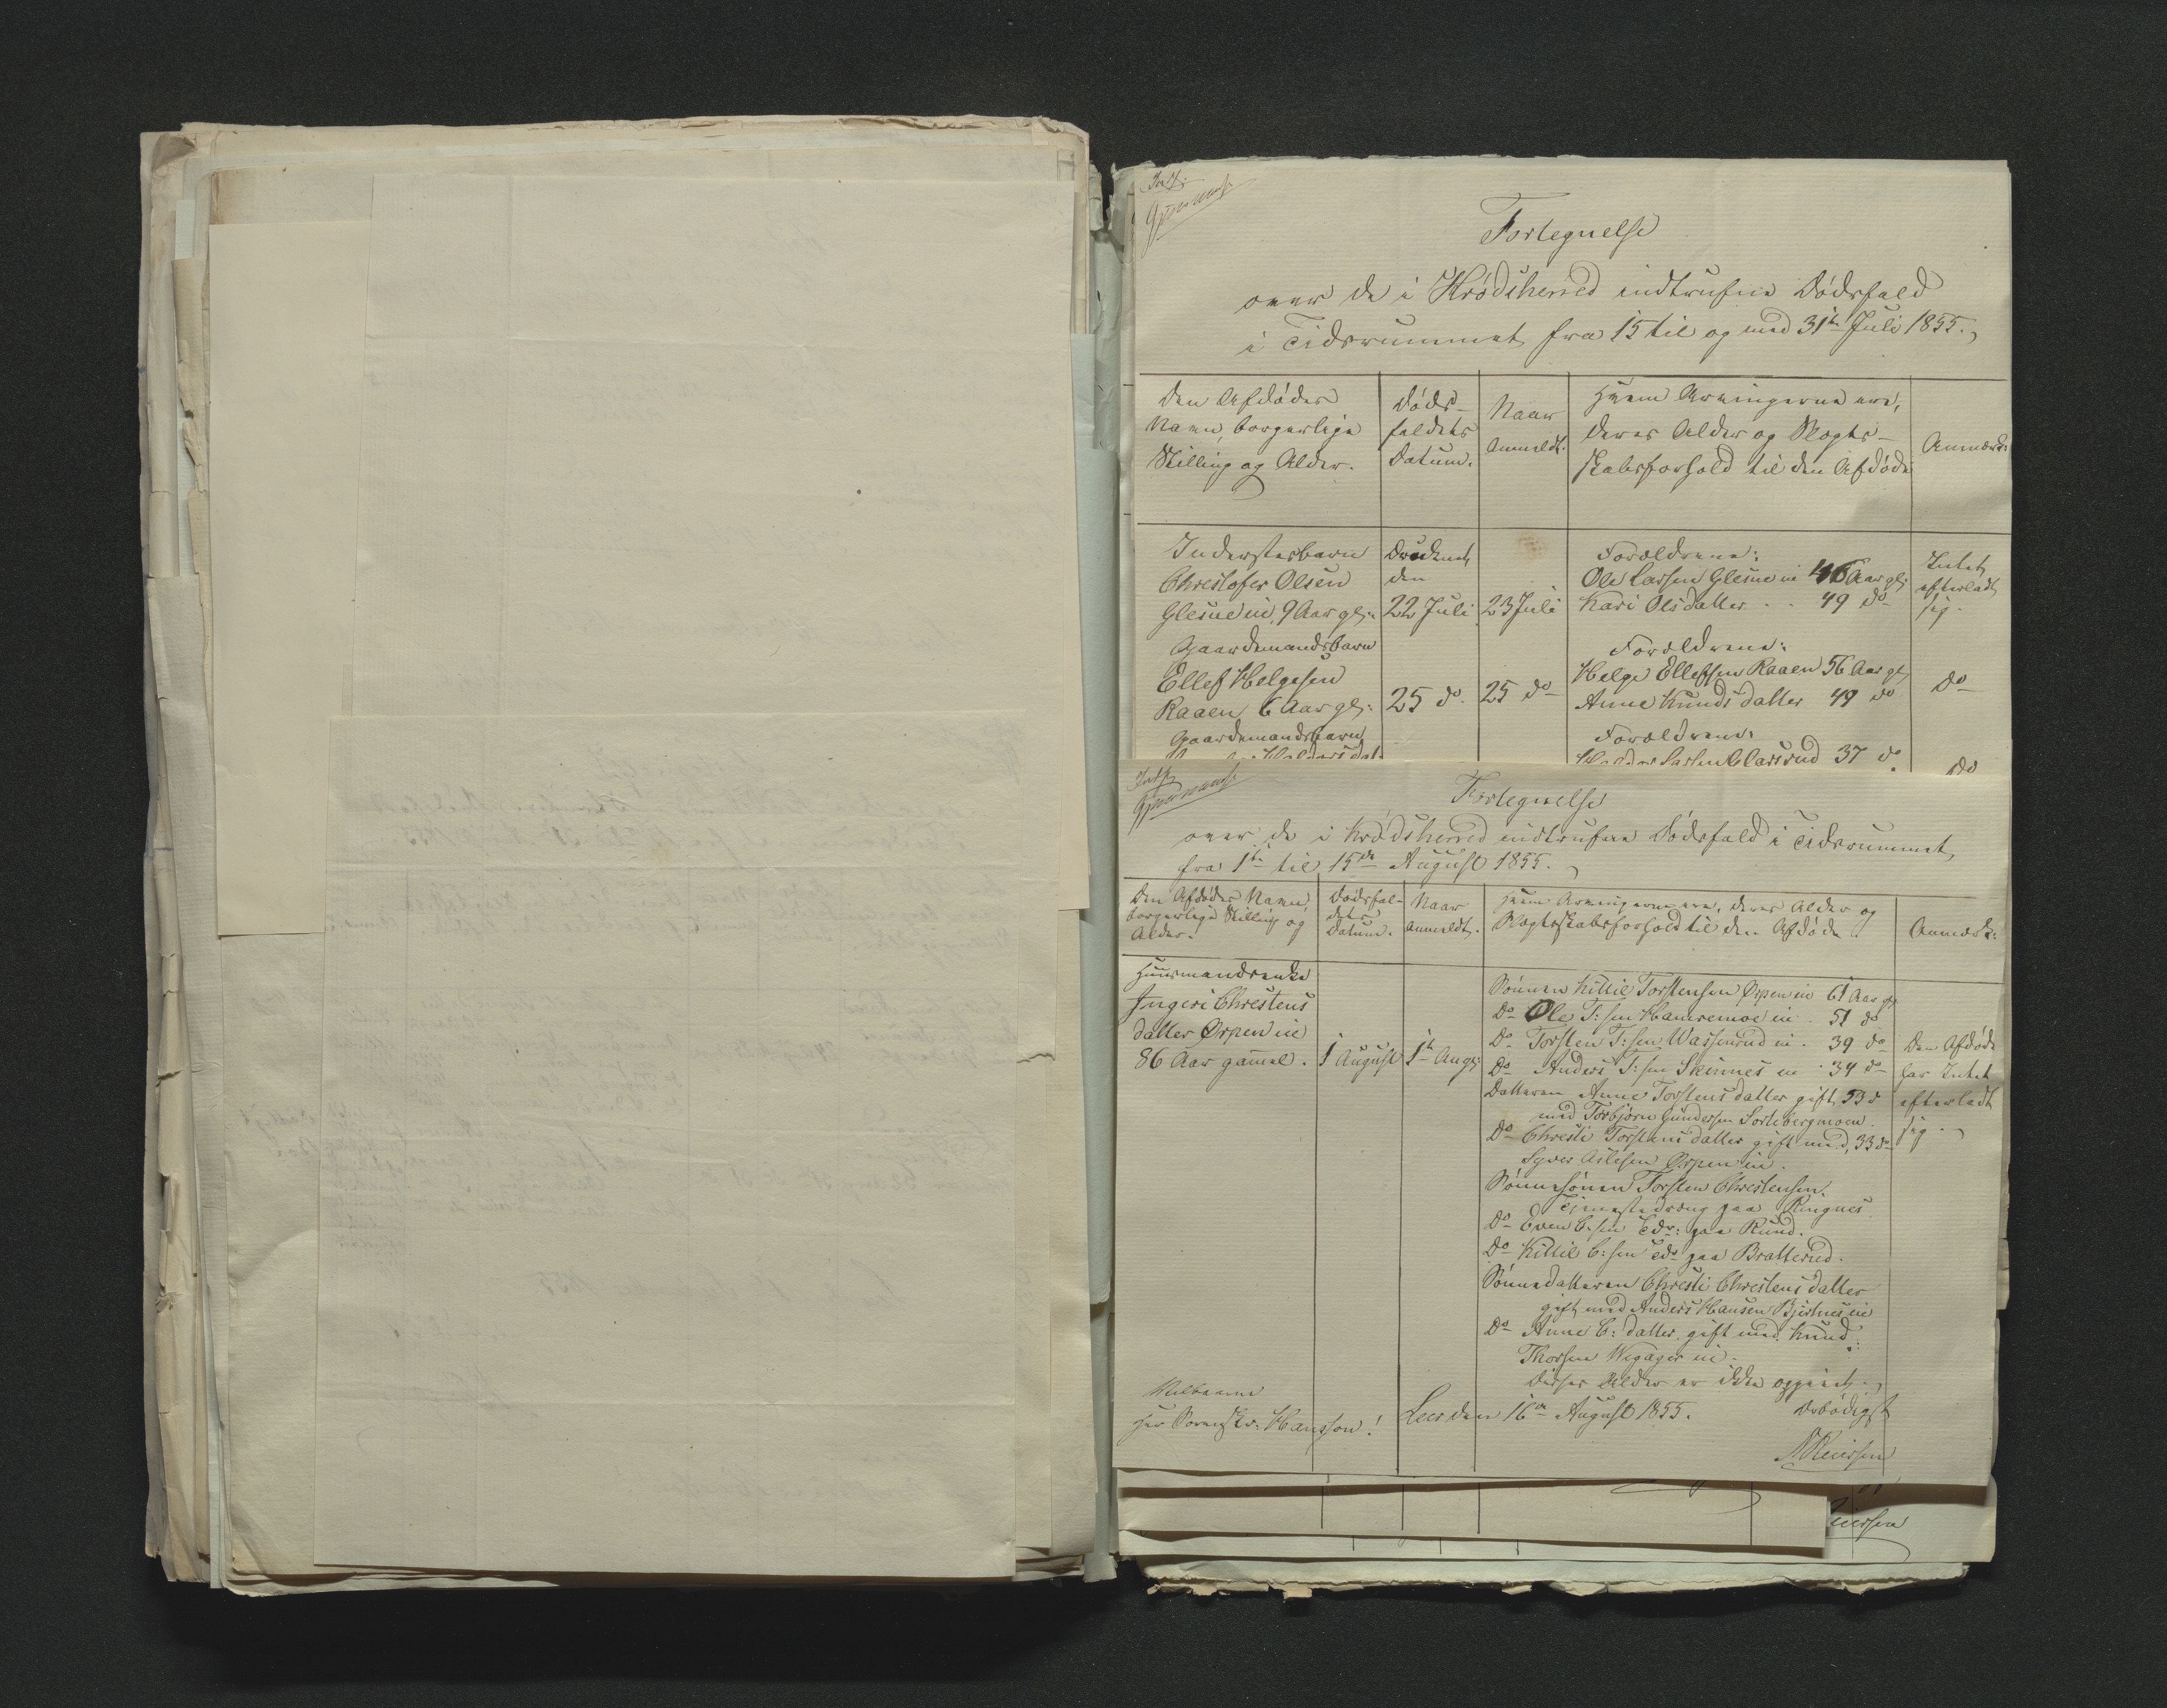 Fortegnelse
over de i Krødsherred indtrufne Dødsfald
i Tidsrummet fra 15 til og med 31te Juli 1855.
Den Afdødes
Navn, borgerlige
Stilling og Alder.
Døds-
faldets
Datum.
Naar
Anmeldt.
Hvem Arvingerne ere,
deres Alder og Slægts-
skabsforhold til den Afdøde
Anmærk:
Inderstesbarn
Christofer Olsen
Glesne eie, 9 Aar gl:
Druknet
den
22 Juli
23 Juli
Forældrene:
Ole Larsen Glesne eie 46 Aar gl:
Kari Olsdatter - - 49 do
Intet
efterladt
sig.
Gaardemandsbarn
Ellef Helgesen
Raaen 6 Aar gl:
25 do.
25 do
Forældrene:
Helge Ellefsen Raaen 56 Aar gl
Anne Knudsdatter 49 do
do
Gaardemandsbarn
Forældrene:
Larsen 37 do
do
Fortegnelse
over de i Krødsherred indtrufne Dødsfald i Tidsrummet
fra 1te til 15de August 1855.
Den Afdødes Navn,
borgerlige Stilling og
Alder.
Dødsfal-
dets
Datum.
Naar
Anmeldt.
Hvem Arvingerne ere, deres Alder og
Slægtsskabsforhold til den Afdøde
Anmærk:
Huusmandsenke
Ingeri Christens
datter Ørpen eie
86 Aar gammel.
1 August
1te Aug:
Sønnen Kittil Torstensen Ørpen eie 61 Aar gl
Do Ole T:sen Hamremoe eie. 51 do
Do Torsten T:sen Wassenrud ei. 39 do
Do Anders T:sen Skinnes eie 34 do
Datteren Anne Torstensdatter gift 53 d
med Torbjørn Gundersen Sortebergmoen.
Do Christi Torstensdatter gift med, 33 do
Syver Aslesen Ørpen eie.
Sønnesønen Torsten Christensen.
Tjenestedreng paa Ringnes
Do Even C:sen Tdr: paa Ruud.
Do Kittil C:sen Tdr paa Bratterud.
Sønnedatteren Christi Christensdatter
gift med Anders Hansen Bjertnes eie
Do Anne C:datter gift med Knud
Thorsen Wegager eie.
Disses Alder er ikke opgivet.
Den Afdøde
har Intet
efterladt
sig.
Velbaarne
Hr Sorenskr: Hansson!
Leer den 16de August 1855.
Ærbødigst